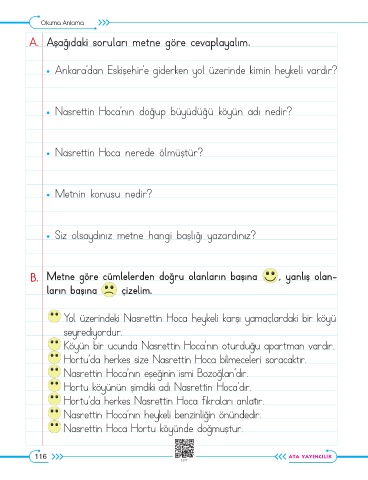 Okuma Anlama
A. Aşağıdaki soruları metne göre cevaplayalım.
• Ankara'dan Eskişehir'e giderken yol üzerinde kimin heykeli vardır?
• Nasrettin Hoca'nın doğup büyüdüğü köyün adı nedir?
• Nasrettin Hoca nerede ölmüştür?
• Metnin konusu nedir?
• Siz olsaydınız metne hangi başlığı yazardınız?
B. Metne göre cümlelerden doğru olanların başına , yanlış olan-
ların başına çizelim.
Yol üzerindeki Nasrettin Hoca heykeli karşı yamaçlardaki bir köyü
seyrediyordur.
Köyün bir ucunda Nasrettin Hoca'nın oturduğu apartman vardır.
Hortu'da herkes size Nasrettin Hoca bilmeceleri soracaktır.
Nasrettin Hoca'nın eşeğinin ismi Bozoğlan'dır.
Hortu köyünün şimdiki adı Nasrettin Hoca'dır.
Hortu'da herkes Nasrettin Hoca fıkraları anlatır.
Nasrettin Hoca'nın heykeli benzinliğin önündedir.
Nasrettin Hoca Hortu köyünde doğmuştur.
116
ATA YAYINCILIK